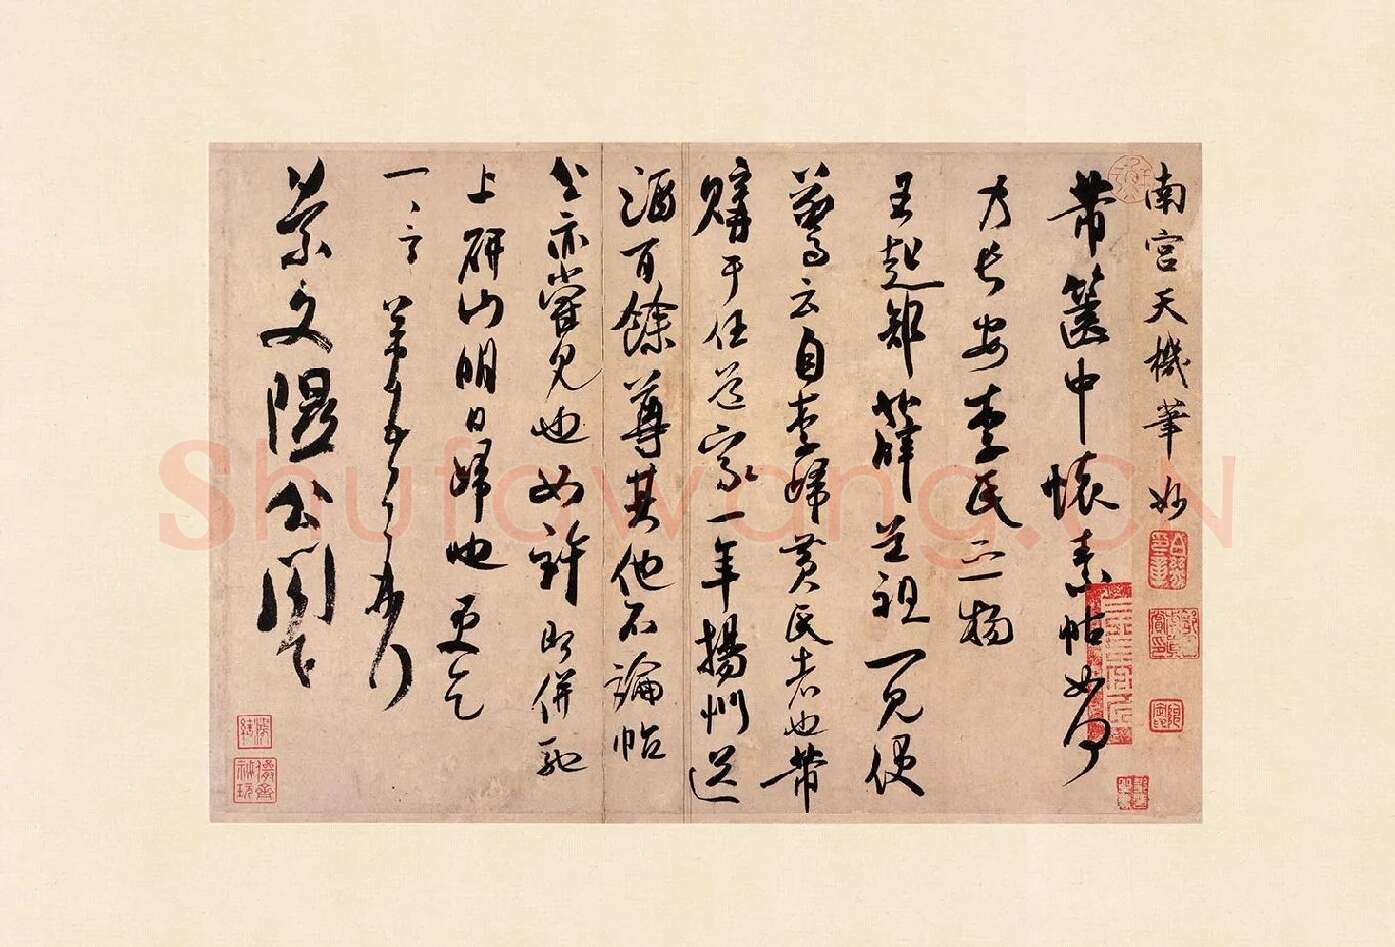 南宮天機筆妙
芾篋中懷素帖如何
乃長安李氏之物
王起部薛道祖一見便
驚云自李歸黃氏者也芾
購于任道家一年揚州送
酒百餘尊其他不論帖
公亦嘗見也如許即併馳
上研山明日歸也更乞
一言芾頓首再拜
景文隰公閤下
Shufawang.CN